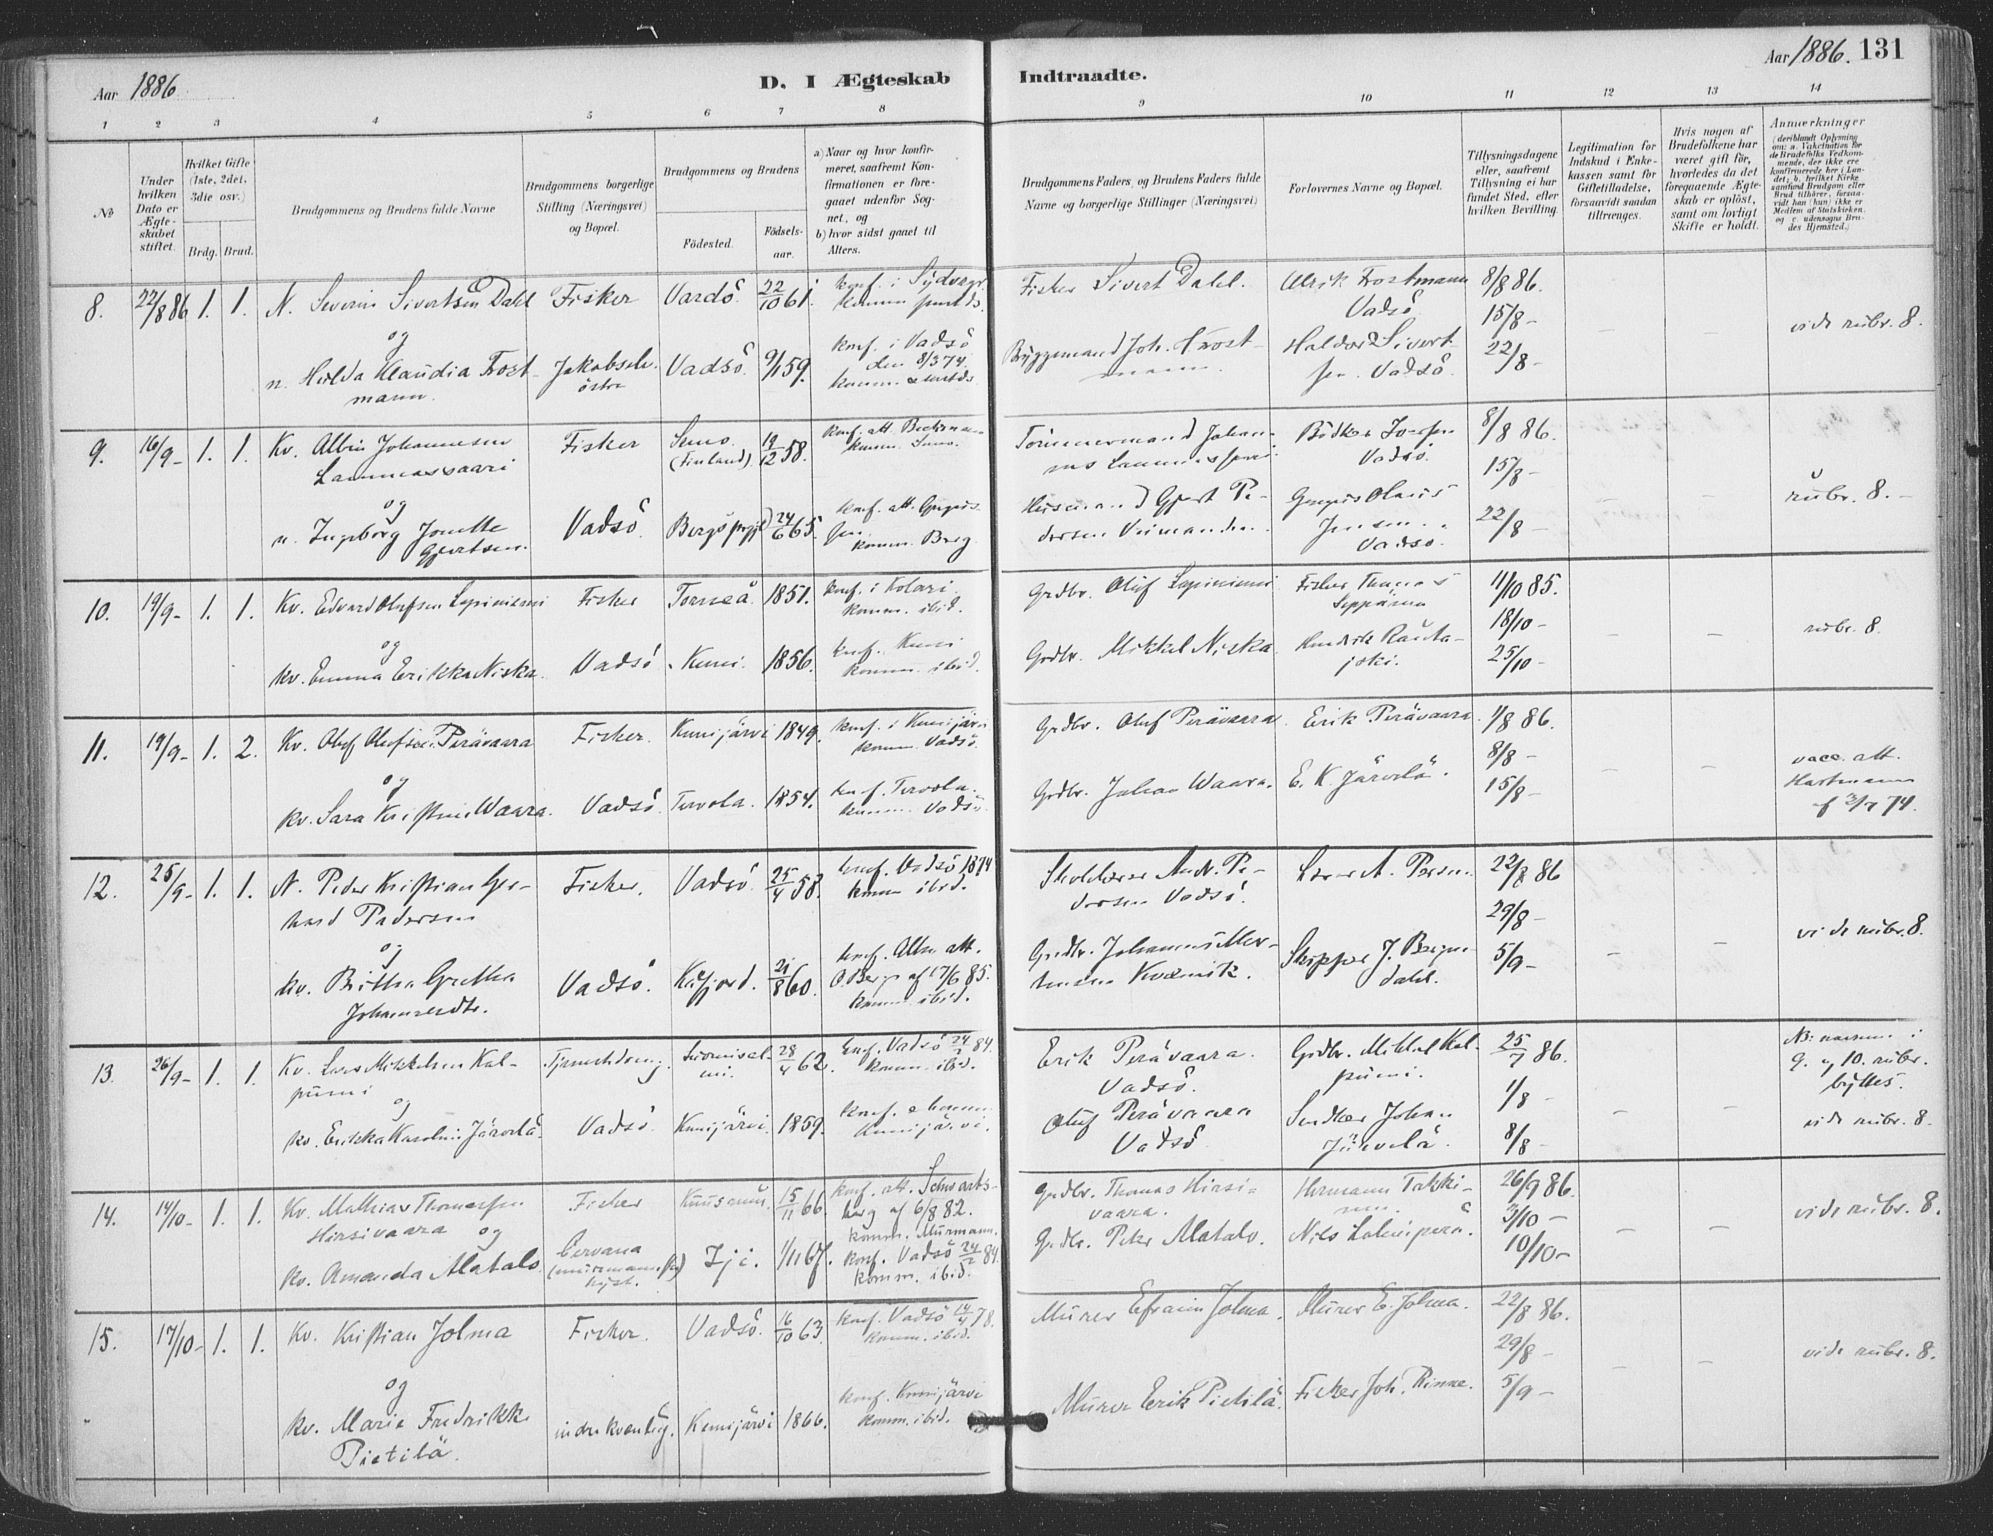 Aar 1886.
D. I Ægteskab
Indtraadte.
Aar 1886. 131
1 2 3 4 5 6 7 8 9 10 11 12 13 14
№
Under hvilken Dato er Ægteskabet stiftet.
Hvilket Gifte (1ste, 2det, 3die osv.)
Brdg. Brud.
Brudgommens og Brudens fulde Navne
Brudgommens borgerlige Stilling (Næringsvei) og Bopæl.
Brudgommens og Brudens
Födested. Födselsaar.
a) Naar og hvor konfirmeret, saafremt Konfirmationen er foregaaet udenfor Sognet, og
b) hvor sidst gaaet til Alters.
Brudgommens Faders og Brudens Faders fulde Navne og borgerlige Stillinger (Næringsvei)
Forlovernes Navne og Bopæl.
Tillysningsdagene eller, saafremt Tillysning ei har fundet Sted, efter hvilken Bevilling.
Legitimation for Indskud i Enkekassen samt for Giftetilladelse, forsaavidt saadan tiltrænges.
Hvis nogen af Brudefolkene har været gift för, hvorledes da det foregaaende Ægteskab er oplöst, samt om lovligt Skifte er holdt.
Anmerkninger
(deriblandt Oplysning om: a. Vakcination for de Brudefolks Vedkommende, der ikke ere konfirmerede her i Landet; b. hvilket Kirkesamfund Brudgom eller Brud tilhörer, forsaavidt han (hun) ikke er Medlem af Statskirken, og c. udensogns Brudes Hjemsted.)
8. 22/8 86 1. 1. N. Severin Sivertsen Dahl Fisker Vardö. 22/10 61. konf. i Sydvaranger
Fisker Sivert Dahl. Ulrik Frostmann Vadsö 8/8 86.
og
15/8 -
n. Hilda Klaudia Frostmann. Jakobselv östre Vadsö 9/1 59. konf. i Vadsö den 8/3 74.
Byggemand Joh. Frostmann. Haldor Sivertsen Vadsö. 22/8 -
vide rubr. 8.
9. 16/9- 1. 1. Kv. Albin Johannesen Lammassaari Fisker Simo. (Finland) 19/12 58. konf. att.
komm. Simo.
Tömmermand Johannes Vadsö. 8/8 86.
og
15/8 -
n. Ingeborg Jonette Gjertsen. Vadsö. 24/6 65. konf. att.
komm. Berg.
Husmand Gjert Pedersen Olaus Jensen Vadsö. 22/8 -
rubr. 8. -
10. 19/9- 1. 1. Kv. Edvard Olufsen Lapiniemi Fisker Torneå 1851. konf. i Kolari. komm. ibid.
Grdbr. Oluf Lapiniemi Fisker Thomas 11/10 85.
og
18/10 -
kv. Emma Erikka Niska. Vadsö Kemi. 1856. konf. Kemi komm. ibid.
Grdbr. Mikkel Niska. Hendrik Rautajoki. 25/10 -
rubr. 8.
11. 19/9- 1. 2. Kv. Oluf Olufsen Perävaara Fisker. Kemijärvi 1849. konf. i Kemijärvi komm. Vadsö.
Grdbr. Oluf Perävaara Erik Perävaara. 1/8 86.
og
8/8 -
kv. Sara Kristine Waara. Vadsö. Tervola. 1854. konf. Tervola. komm. Vadsö.
Grdbr. Johan Waara. E. K. Järvelä. 15/8 -
vacc. att. Hartmann
12. 25/9- 1. 1. N. Peder Kristian Gerhard Pedersen Fisker. Vadsö 25/4 58. konf. Vadsö 1874 komm. ibid.
Skolelærer And. Pedersen Vadsö. 22/8 86
og
29/8 -
kv. Britha Gretha Johannesdtr. Vadsö. Kåfjord. 21/8 60. konf. Alten att. O. Berg af 17/6 85. komm. ibid.
Grdbr. Johannes Skipper J. Bergdahl. 5/9 -
vide rubr. 8.
13. 26/9- 1. 1. Kv. Lars Mikkelsen Kalpumi Tjenestedreng Suomisalmi. 28/4 62. konf. Vadsö komm. ibid.
Erik Perävaara. Vadsö. Grdbr. Mikkel Kalpumi. 25/7 86.
og
1/8 -
kv. Erikka Karolin Järvelä. Vadsö Kemijärvi. 1859. konf. & komm. Kemijärvi.
Oluf Perävaara Vadsö Johan Järvelä. 8/8 -
NB: navnene i 9. og 10. rubr. byttes.
vide rubr. 8.
14. 14/10- 1. 1. Kv. Mathias Thomassen Hirsivaara og Fisker Kuusamo. 15/11 66. konf. att. Schwartzberg af 6/8 82. komm. Murmann.
Grdbr. Thomas Hirsivaara. Hermann 26/9 86.
3/10 -
kv. Amanda Matalo. Ijo. konf. Vadsö komm. ibid.
Grdbr. Peter Matalo. Nils 10/10 -
vide rubr. 8.
15. 17/10- 1. 1. Kv. Kristian Jolma Fisker. Vadsö. 16/10 63. konf. Vadsö komm. ibid.
Murer Efraim Jolma. Murer E. Jolma. 22/8 86.
og
29/8 -
kv. Marie Fredrikke Pietilä. indre kvenby. Kemijärvi 1866. konf. Kemijärvi komm. ibid.
Murer Erik Pietilä. Fisker Joh. Rinne. 5/9 -
vide rubr. 8.